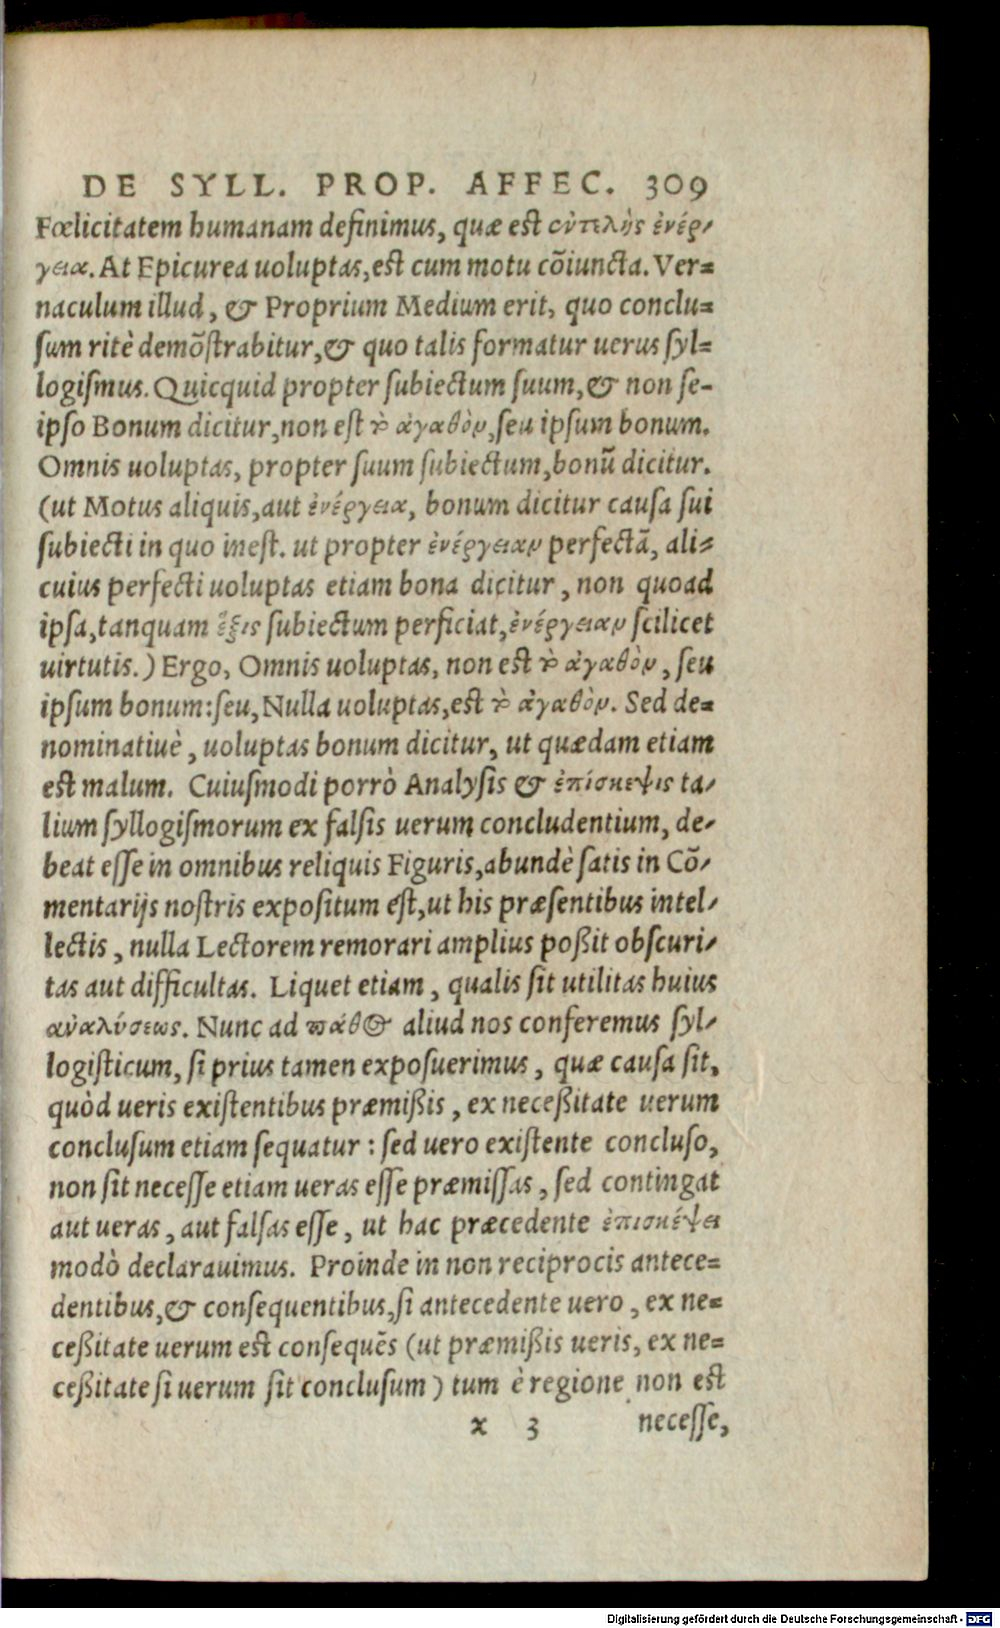 DE SYLL. PROP. AFFEC. 309
Fœlicitatem humanam definimus, quæ est ἐντελὴς ἐνέρ-
γεια. At Epicurea uoluptas, est cum motu cōiuncta. Ver=
naculum illud, & Proprium Medium erit, quo conclu=
ſum ritè demōſtrabitur, & quo talis formatur uerus ſyl=
logiſmus. Quicquid propter ſubiectum ſuum, & non ſe-
ipſo Bonum dicitur, non eſt τὸ ἀγαθὸν, ſeu ipſum bonum.
Omnis uoluptas, propter ſuum ſubiectum, bonū dicitur.
(ut Motus aliquis, aut ἐνέργεια, bonum dicitur cauſa ſui
ſubiecti in quo ineſt. ut propter ἐνέργειαν perfectā, ali-
cuius perfecti uoluptas etiam bona dicitur, non quoad
ipſa, tanquam ἕξις ſubiectum perficiat, ἐνέργειαν ſcilicet
uirtutis.) Ergo, Omnis uoluptas, non eſt τὸ ἀγαθὸν, ſeu
ipſum bonum: ſeu, Nulla uoluptas, eſt τὸ ἀγαθὸν. Sed de=
nominatiuè, uoluptas bonum dicitur, ut quædam etiam
eſt malum. Cuiuſmodi porrò Analyſis & ἐπίσκεψις ta-
lium ſyllogiſmorum ex falſis uerum concludentium, de-
beat eſſe in omnibus reliquis Figuris, abundè ſatis in Cō-
mentarijs noſtris expoſitum eſt, ut his præſentibus intel-
lectis, nulla Lectorem remorari amplius poßit obſcuri-
tas aut difficultas. Liquet etiam, qualis ſit utilitas huius
ἀναλύσεως. Nunc ad πάθος aliud nos conferemus ſyl-
logiſticum, ſi prius tamen expoſuerimus, quæ cauſa ſit,
quòd ueris exiſtentibus præmißis, ex neceßitate uerum
concluſum etiam ſequatur: ſed uero exiſtente concluſo,
non ſit neceſſe etiam ueras eſſe præmiſſas, ſed contingat
aut ueras, aut falſas eſſe, ut hac præcedente ἐπισκέψει
modò declarauimus. Proinde in non reciprocis antece=
dentibus, & conſequentibus, ſi antecedente uero, ex ne=
ceßitate uerum eſt conſequēs (ut præmißis ueris, ex ne=
ceßitate ſi uerum ſit concluſum) tum è regione non eſt
x 3 neceſſe,
Digitalisierung gefördert durch die Deutsche Forschungsgemeinschaft - DFG